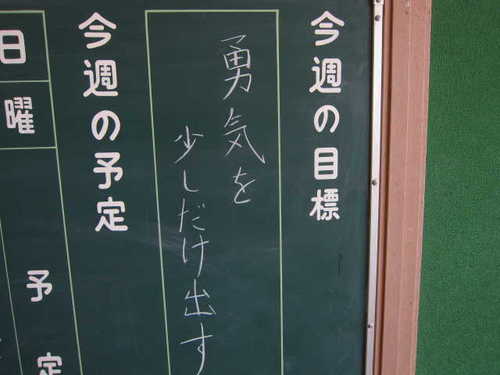 今週の目標
勇気を
少しだけ出す
今週の予定
日曜
予定